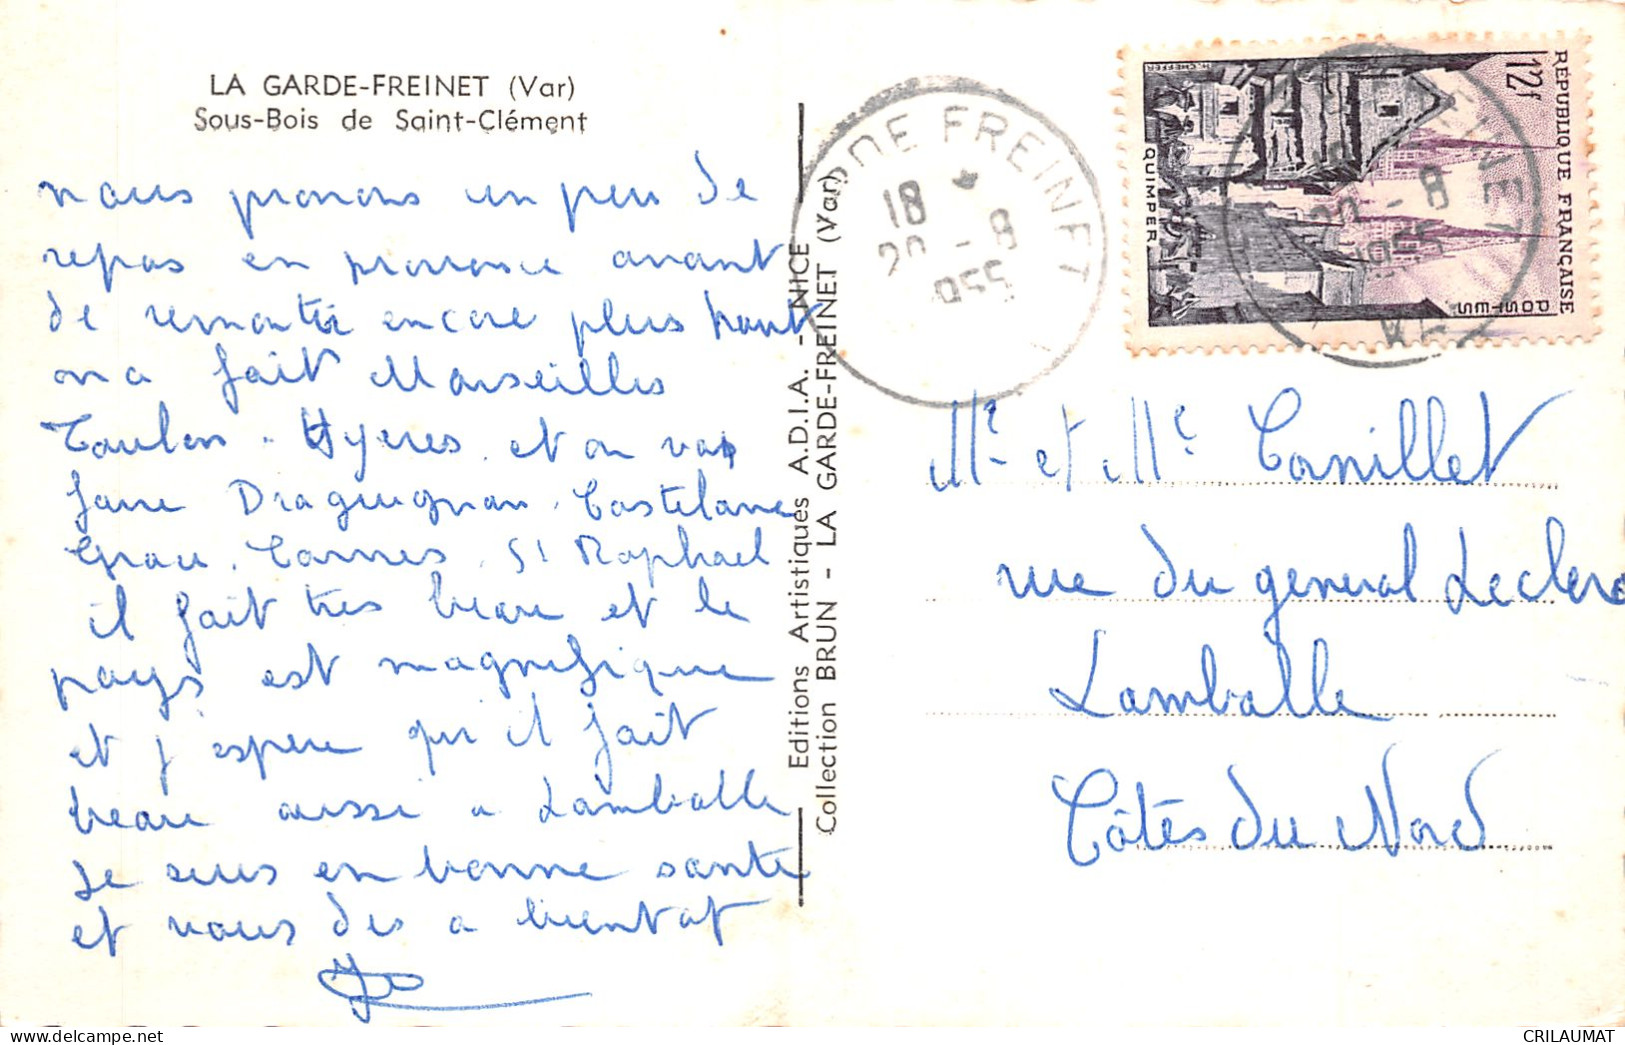 LA GARDE-FREINET (Var)
Sous-Bois de Saint-Clément
nous prenons un peu de
repos en provence avant
de remonter encore plus haut
on a fait Marseilles
Toulon. Hyeres. et on va
faire Draguignan. Castelane
Grasse. Cannes. St Raphael
il fait très beau et le
pays est magnifique
et j'espere qu'il fait
beau aussi a Lamballe
Je suis en bonne sante
et vous dis a bientot
Editions Artistiques A.D.I.A. - NICE
Collection BRUN - LA GARDE-FREINET (Var)
GARDE FREINET
18 *
20 - 8
1955
RÉPUBLIQUE FRANÇAISE
12f
POSTES
QUIMPER
H. CHEFFER
FREINET
20 - 8
1955
VAR
Mr et Me Canillet
rue du general Leclerc
Lamballe
Côtes du Nord
CRILAUMAT